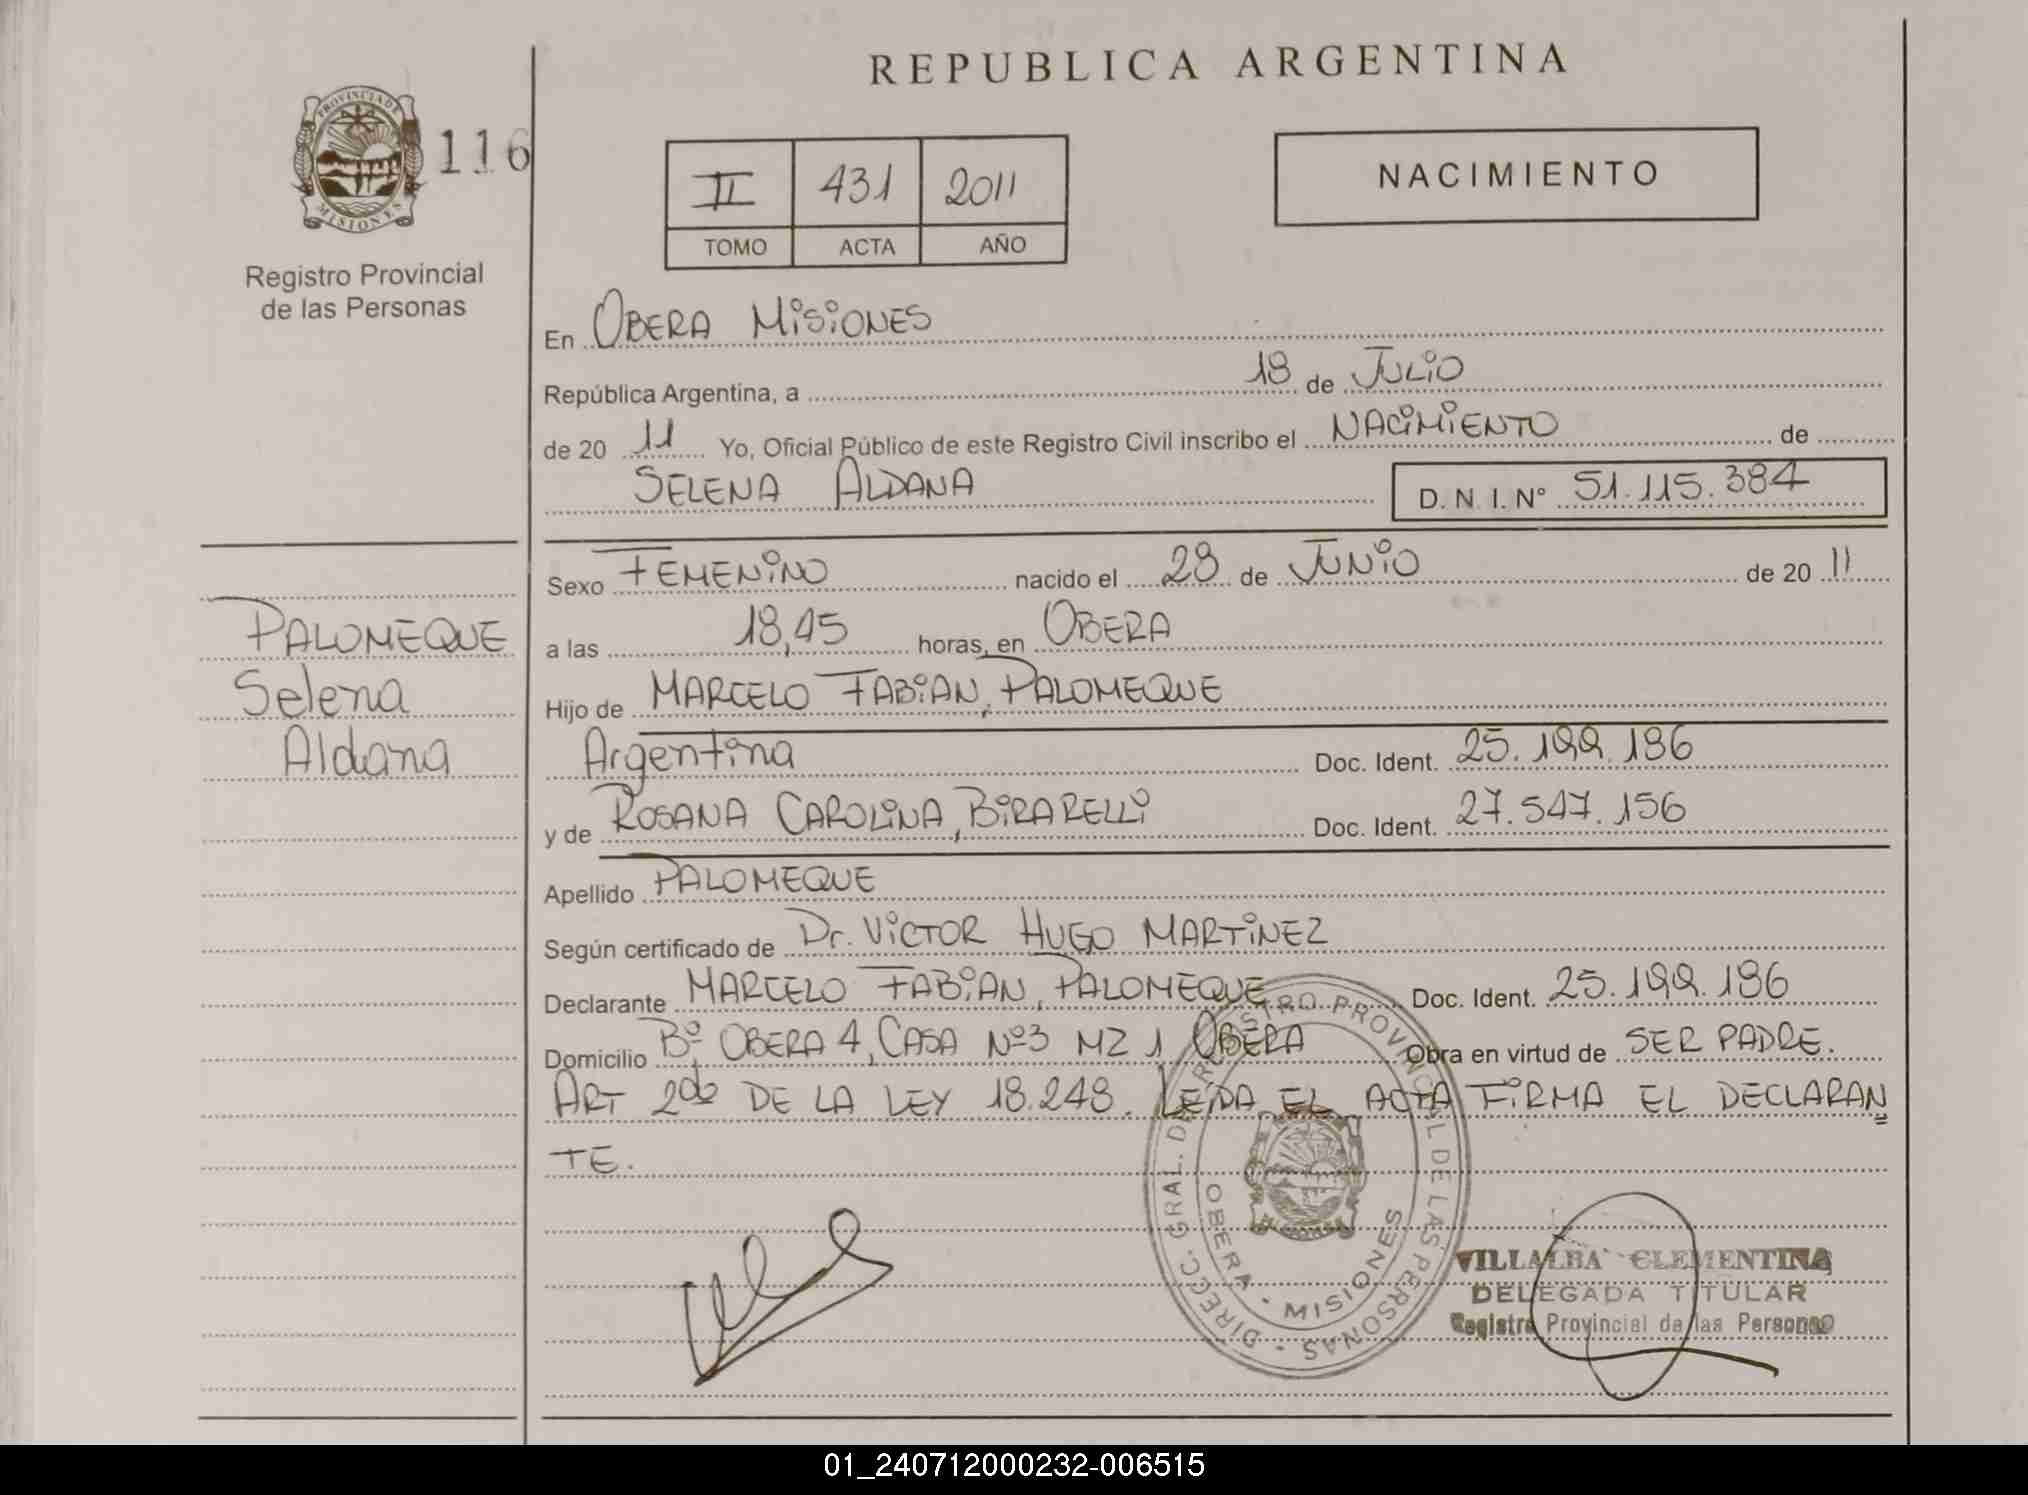 REPUBLICA ARGENTINA
PROVINCIA DE
MISIONES
116
Registro Provincial
de las Personas
II 431 2011
TOMO ACTA AÑO
NACIMIENTO
En OBERA MISIONES
República Argentina, a 18 de JULIO
de 20 11 Yo, Oficial Público de este Registro Civil inscribo el NACIMIENTO de
SELENA ALDANA D. N. I. N° 51.115.384
Sexo FEMENINO nacido el 28 de JUNIO de 20 11
a las 18,45 horas, en OBERA
Hijo de MARCELO FABIAN, PALOMEQUE
Argentina Doc. Ident. 25.199.186
y de ROSANA CAROLINA, BIRARELLI Doc. Ident. 27.547.156
Apellido PALOMEQUE
Según certificado de Dr. VICTOR HUGO MARTINEZ
Declarante MARCELO FABIAN, PALOMEQUE Doc. Ident. 25.199.186
Domicilio Bº OBERA 4, CASA Nº3 MZ 1 OBERA Obra en virtud de SER PADRE.
ART 2do DE LA LEY 18.248. LEIDA EL ACTA FIRMA EL DECLARAN=
TE.
PALOMEQUE
Selena
Aldana
DIRECC. GRAL. DE REGISTRO PROVINCIAL DE LAS PERSONAS
OBERA - MISIONES
VILLALBA CLEMENTINA
DELEGADA TITULAR
Registro Provincial de las Personas
01_240712000232-006515